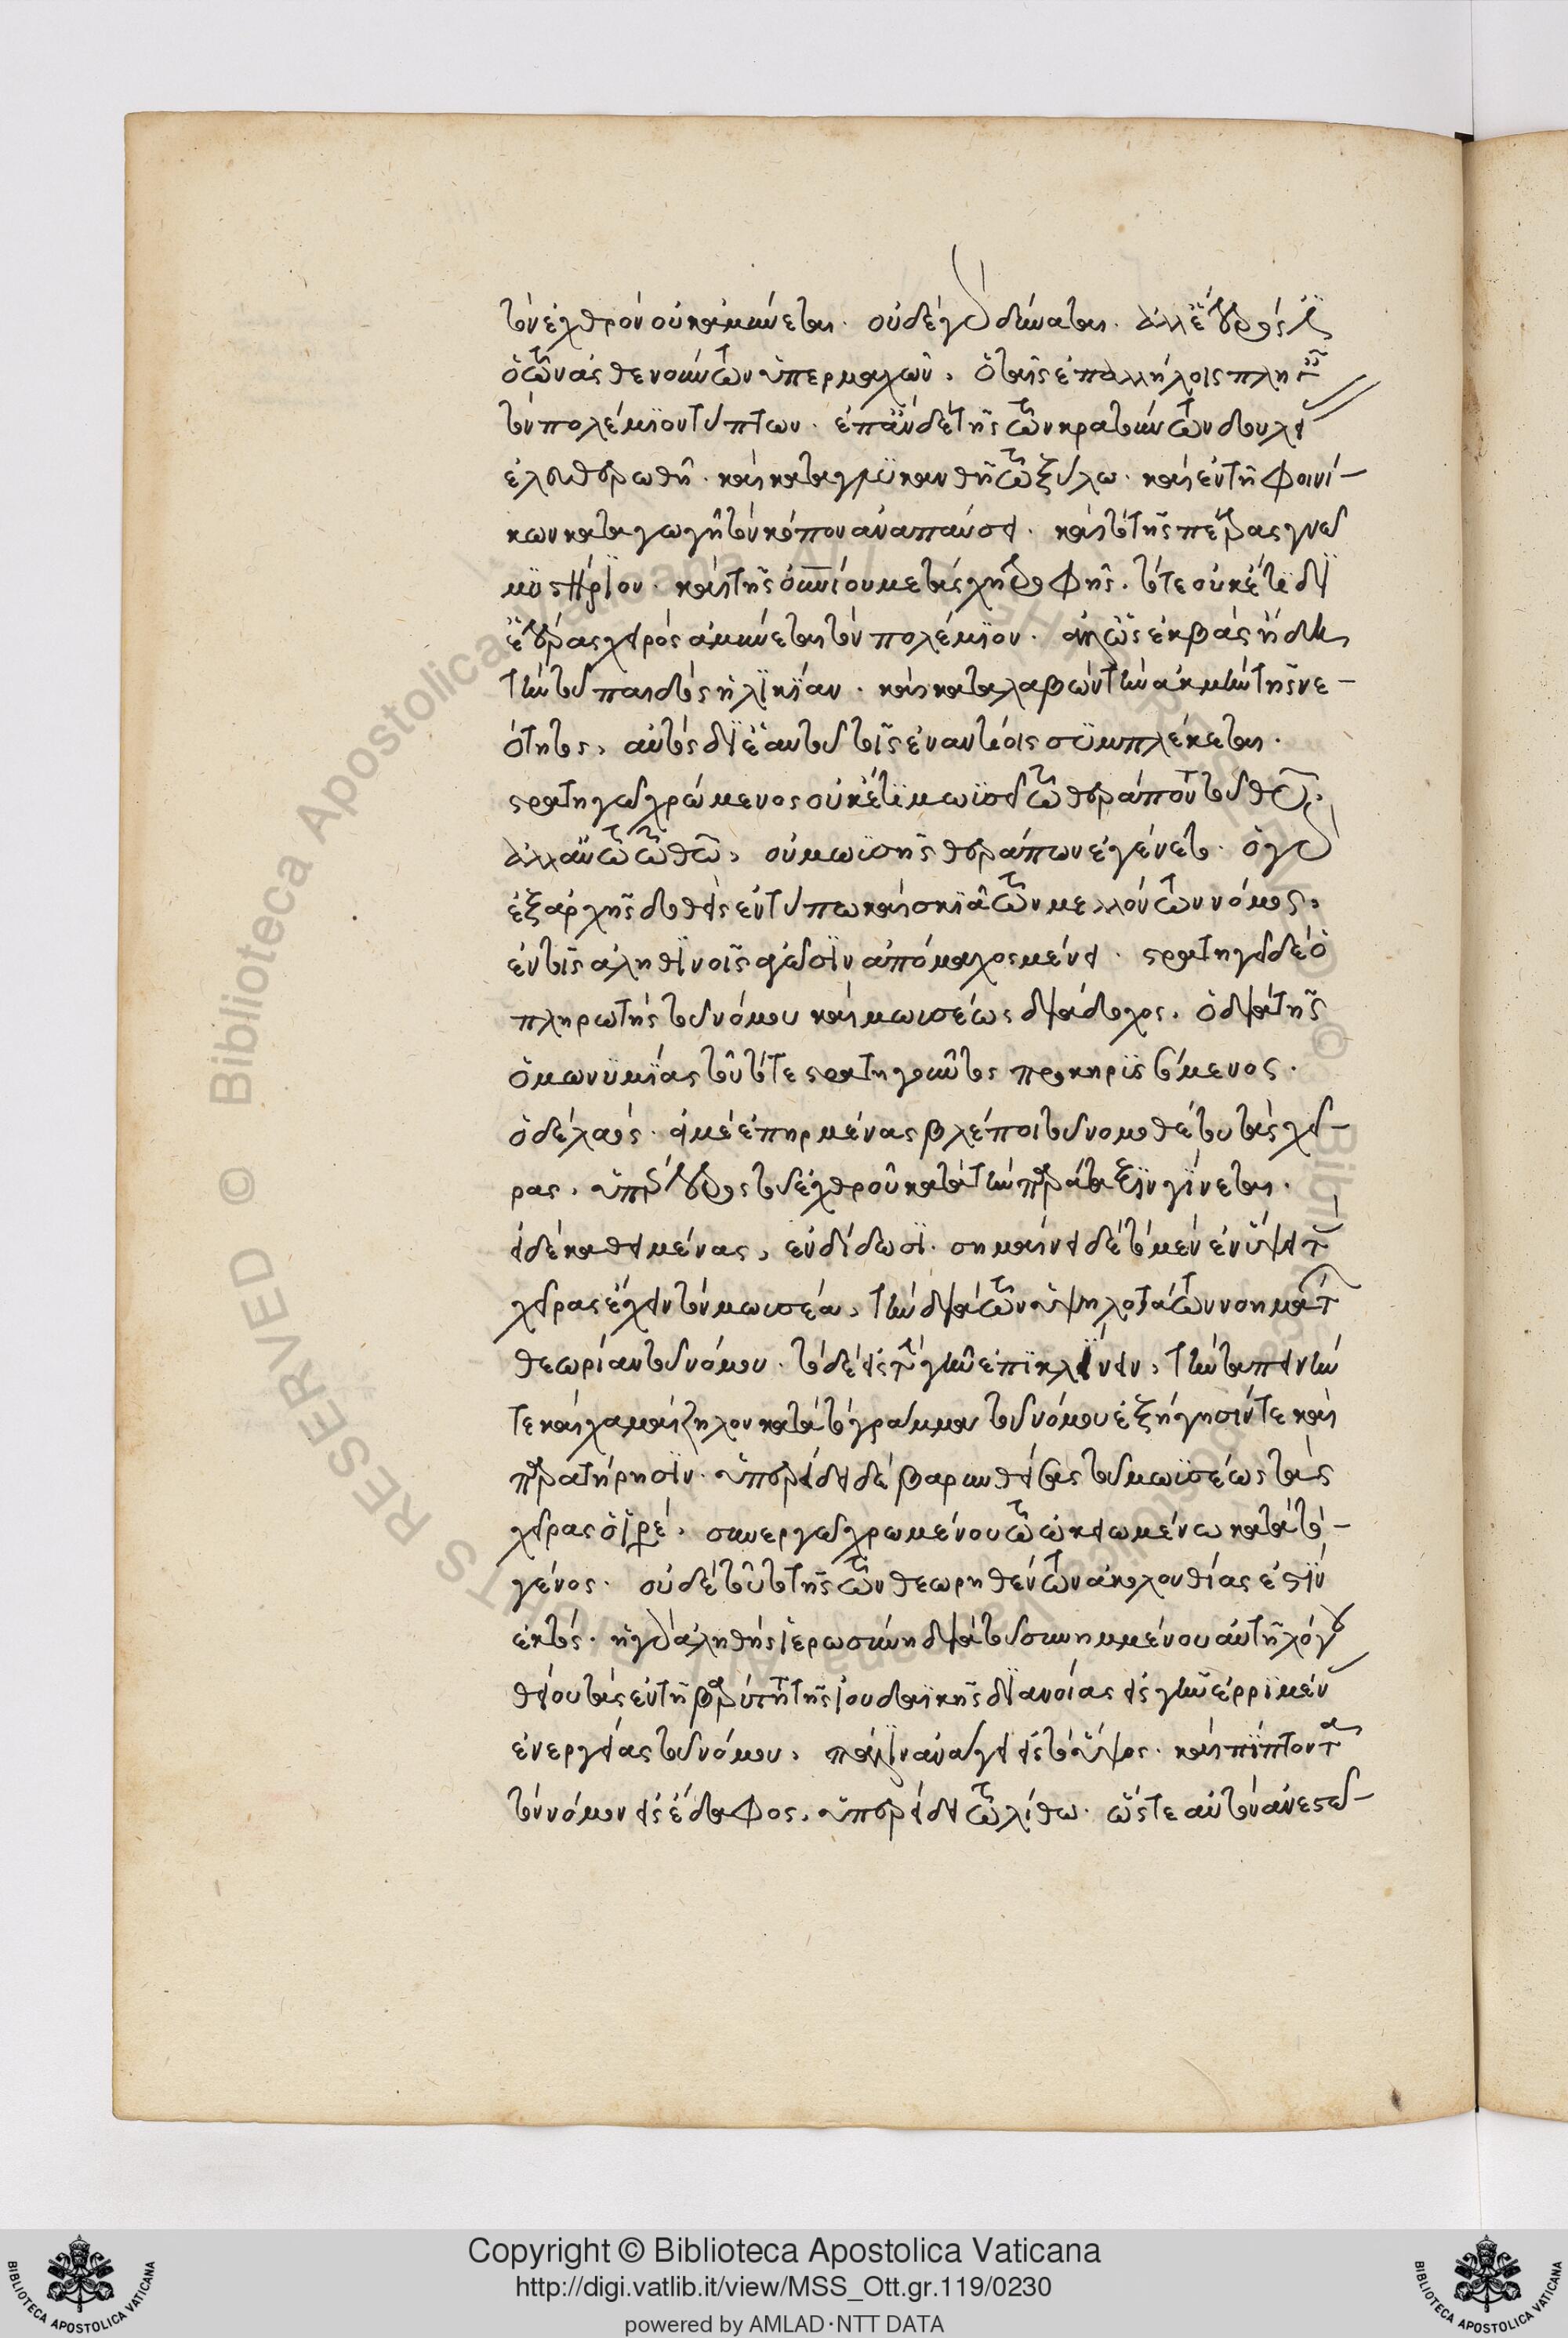 τὸν ἐχθρὸν οὐκ ἀμύνεται. οὐδὲ γὰρ δύναται. ἀλλ' ἕτερός ἐστιν
ὁ τῶν ἀσθενούντων ὑπερμαχῶν, ὁ ταῖς ἐπαλλήλοις πληγαῖς
τὸν πολέμιον τύπτων. ἐπὰν δὲ τῆς τῶν κρατούντων δουλείας
ἐλευθερωθῇ. καὶ καταγλυκανθῇ τῷ ξύλω. καὶ ἐν τῇ φοινί-
κων καταγωγῇ τὸν κόπον ἀναπαύσει. καὶ τὸ τῆς πέτρας γνῷ
μυστήριον. καὶ τῆς οὐνίου μετάσχῃ τροφῆς. τότε οὐκέτι δι
ἑτέρας χειρὸς ἀμύνεται τὸν πολέμιον. ἀλλ' ὡς ἐκβὰς ἤδη
τὴν τοῦ παιδὸς ἡλικίαν. καὶ καταλαβὼν τὴν ἀκμὴν τῆς νε-
ότητος, αὐτὸς δι ἑαυτοῦ τοῖς ἐναντίοις συμπλέκεται.
στρατηγῷ χρώμενος οὐκέτι μωϊσεῖ τῷ θεράποντι τοῦ θεοῦ,
ἀλλ' αὐτῷ τῷ θεῷ, οὗ μωϊσῆς θεράπων ἐγένετο. ὁ γὰρ
ἐξ ἀρχῆς δοθεὶς ἐν τύπω καὶ σκιᾷ τῶν μελλόντων νόμος,
ἐν τοῖς ἀληθινοῖς ἀγῶσιν ἀπόμαχος μένει. στρατηγεῖ δὲ ὁ
πληρωτὴς τοῦ νόμου καὶ μωισέως διάδοχος. ὁ διὰ τῆς
ὁμωνυμίας τοῦ τότε στρατηγοῦντος προκηρυσσόμενος.
ὁ δὲ λαός. εἰ μὲ ἐπηρμένας βλέποι τοῦ νομοθέτου τὰς χεῖ-
ρας, ὑπέρτερος τοῦ ἐχθροῦ κατὰ τὴν παράταξιν γίνεται.
εἰ δὲ καθειμένας, ἐνδίδωσι. σημαίνει δὲ τὸ μὲν ἐν ὕψει τὰς
χεῖρας ἔχειν τὸν μωισέα, τὴν διὰ τῶν ὑψηλοτάτων νοημάτων
θεωρίαν τοῦ νόμου. τὸ δὲ εἰς τὴν γῆν ἐπικλίνειν, τὴν ταπεινήν
τε καὶ χαμαίζηλον κατὰ τὸ γράμμα τοῦ νόμου ἐξήγησίν τε καὶ
παρατήρησιν. ὑπερείδει δὲ βαρυνθείσας τοῦ μωϊσέως τὰς
χεῖρας ὁ ἱερεύ, συνεργῷ χρωμένου τῷ ὠκειωμένω κατὰ τὸ-
γένος. οὐδὲ τοῦτο τῆς τῶν θεωρηθέντων ἀκολουθίας ἐστὶν
ἐκτός. ἡ γὰρ ἀληθὴς ἱερωσύνη διὰ τοῦ συνημμένου αὐτῇ λόγου
θείου τὰς ἐν τῇ βαρύτητι τῆς ἰουδαϊκῆς διανοίας εἰς γῆν ἐρριμένας
ἐνεργείας τοῦ νόμου, πάλιν ἀνάγει εἰς τὸ ὕψος. καὶ πίπτοντα
τὸν νόμον εἰς ἔδαφος, ὑπερείδει τῷ λίθω. ὥστε αὐτὸν ἀνεστῶ-
Copyright © Biblioteca Apostolica Vaticana
http://digi.vatlib.it/view/MSS_Ott.gr.119/0230
powered by AMLAD·NTT DATA